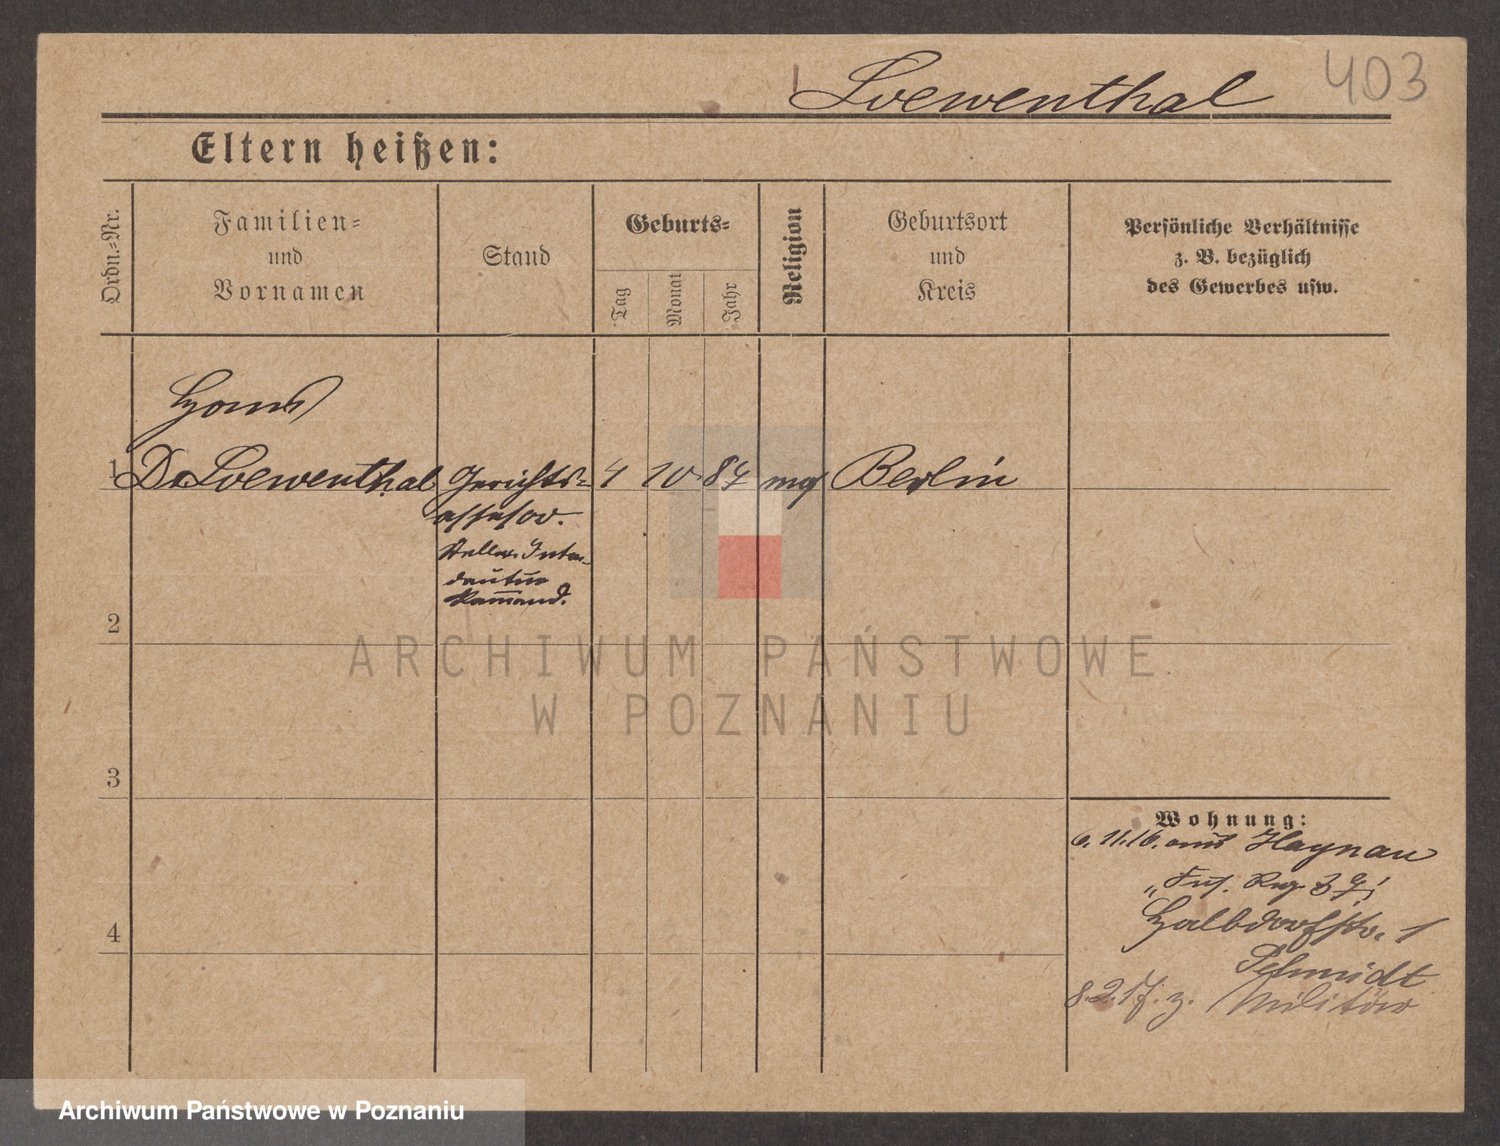 Loewenthal 403
Eltern heißen:
Ordn.-Nr.
Familien-
und
Vornamen
Stand
Geburts-
Tag
Monat
Jahr
Religion
Geburtsort
und
Kreis
Persönliche Verhältnisse
z. B. bezüglich
des Gewerbes usw.
Hans
1 Dr Loewenthal Gerichts- 4 10 87 Berlin
assessor.
Stellv. Inten-
Kommand.
2
3
4
Wohnung:
6. 11. 16. aus Haynau
Halbdorfstr. 1
Schmidt
8. 2. 17. z. Militär
ARCHIWUM PAŃSTWOWE
W POZNANIU
Archiwum Państwowe w Poznaniu